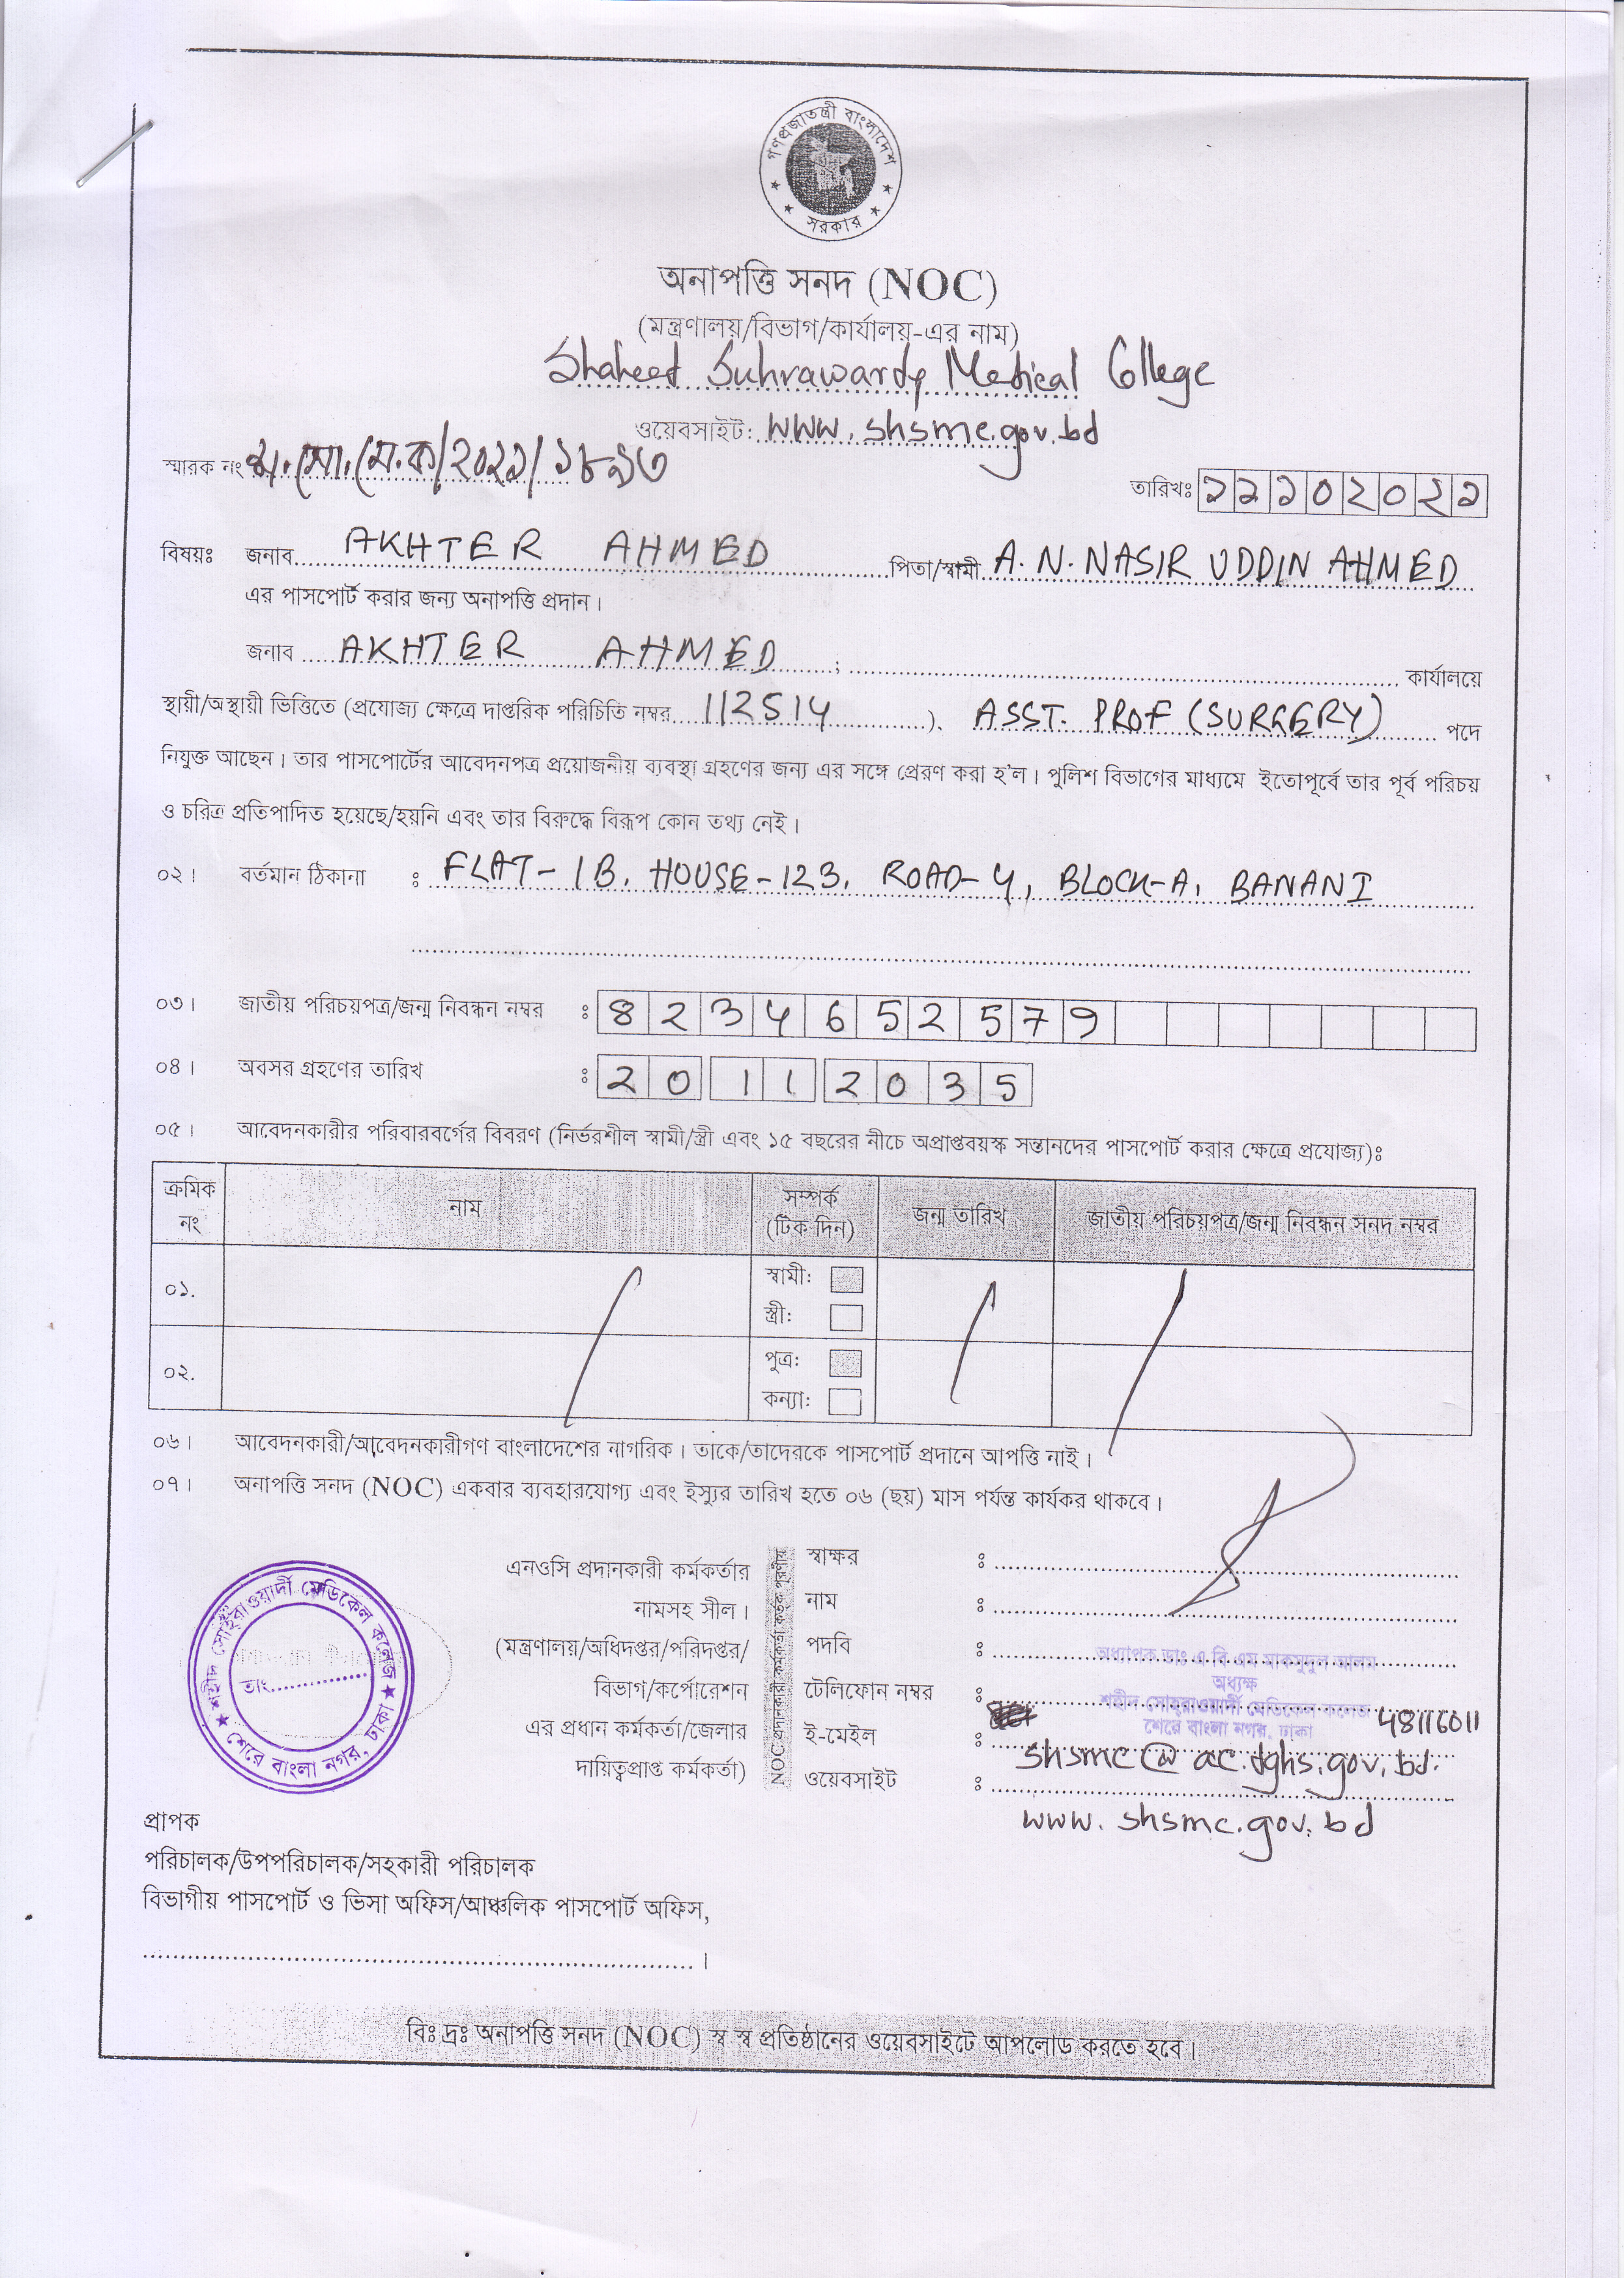 গণপ্রজাতন্ত্রী বাংলাদেশ
সরকার
অনাপত্তি সনদ (NOC)
(মন্ত্রণালয়/বিভাগ/কার্যালয়-এর নাম)
Shaheed Suhrawardy Medical College
ওয়েবসাইট: www.shsmc.gov.bd
স্মারক নং
তারিখঃ ১১১০২০২১
বিষয়ঃ জনাব AKHTER AHMED পিতা/স্বামী A. N. NASIR UDDIN AHMED
এর পাসপোর্ট করার জন্য অনাপত্তি প্রদান।
জনাব AKHTER AHMED ; কার্যালয়ে
স্থায়ী/অস্থায়ী ভিত্তিতে (প্রযোজ্য ক্ষেত্রে দাপ্তরিক পরিচিতি নম্বর 112514), ASST. PROF (SURGERY) পদে
নিযুক্ত আছেন। তার পাসপোর্টের আবেদনপত্র প্রয়োজনীয় ব্যবস্থা গ্রহণের জন্য এর সঙ্গে প্রেরণ করা হ'ল। পুলিশ বিভাগের মাধ্যমে ইতোপূর্বে তার পূর্ব পরিচয়
ও চরিত্র প্রতিপাদিত হয়েছে/হয়নি এবং তার বিরুদ্ধে বিরূপ কোন তথ্য নেই।
০২। বর্তমান ঠিকানা : FLAT-1B, HOUSE-123, ROAD-4, BLOCK-A, BANANI
০৩। জাতীয় পরিচয়পত্র/জন্ম নিবন্ধন নম্বর : 8234652579
০৪। অবসর গ্রহণের তারিখ : 20 11 2035
০৫। আবেদনকারীর পরিবারবর্গের বিবরণ (নির্ভরশীল স্বামী/স্ত্রী এবং ১৫ বছরের নীচে অপ্রাপ্তবয়স্ক সন্তানদের পাসপোর্ট করার ক্ষেত্রে প্রযোজ্য)ঃ
ক্রমিক নং নাম সম্পর্ক (টিক দিন) জন্ম তারিখ জাতীয় পরিচয়পত্র/জন্ম নিবন্ধন সনদ নম্বর
০১. স্বামী:
স্ত্রী:
০২. পুত্র:
কন্যা:
০৬। আবেদনকারী/আবেদনকারীগণ বাংলাদেশের নাগরিক। তাকে/তাদেরকে পাসপোর্ট প্রদানে আপত্তি নাই।
০৭। অনাপত্তি সনদ (NOC) একবার ব্যবহারযোগ্য এবং ইস্যুর তারিখ হতে ০৬ (ছয়) মাস পর্যন্ত কার্যকর থাকবে।
শহীদ সোহরাওয়ার্দী মেডিকেল কলেজ
তাং
শেরে বাংলা নগর, ঢাকা
এনওসি প্রদানকারী কর্মকর্তার
নামসহ সীল।
(মন্ত্রণালয়/অধিদপ্তর/পরিদপ্তর/
বিভাগ/কর্পোরেশন
এর প্রধান কর্মকর্তা/জেলার
দায়িত্বপ্রাপ্ত কর্মকর্তা)
NOC প্রদানকারী কর্মকর্তা কর্তৃক পূরণীয়
স্বাক্ষর :
নাম :
পদবি :
টেলিফোন নম্বর :
ই-মেইল :
ওয়েবসাইট :
অধ্যাপক ডাঃ এ বি এম মাকসুদুল আলম
অধ্যক্ষ
শহীদ সোহরাওয়ার্দী মেডিকেল কলেজ
শেরে বাংলা নগর, ঢাকা
48116011
shsmc@ac.dghs.gov.bd.
www.shsmc.gov.bd
প্রাপক
পরিচালক/উপপরিচালক/সহকারী পরিচালক
বিভাগীয় পাসপোর্ট ও ভিসা অফিস/আঞ্চলিক পাসপোর্ট অফিস,
বিঃ দ্রঃ অনাপত্তি সনদ (NOC) স্ব স্ব প্রতিষ্ঠানের ওয়েবসাইটে আপলোড করতে হবে।